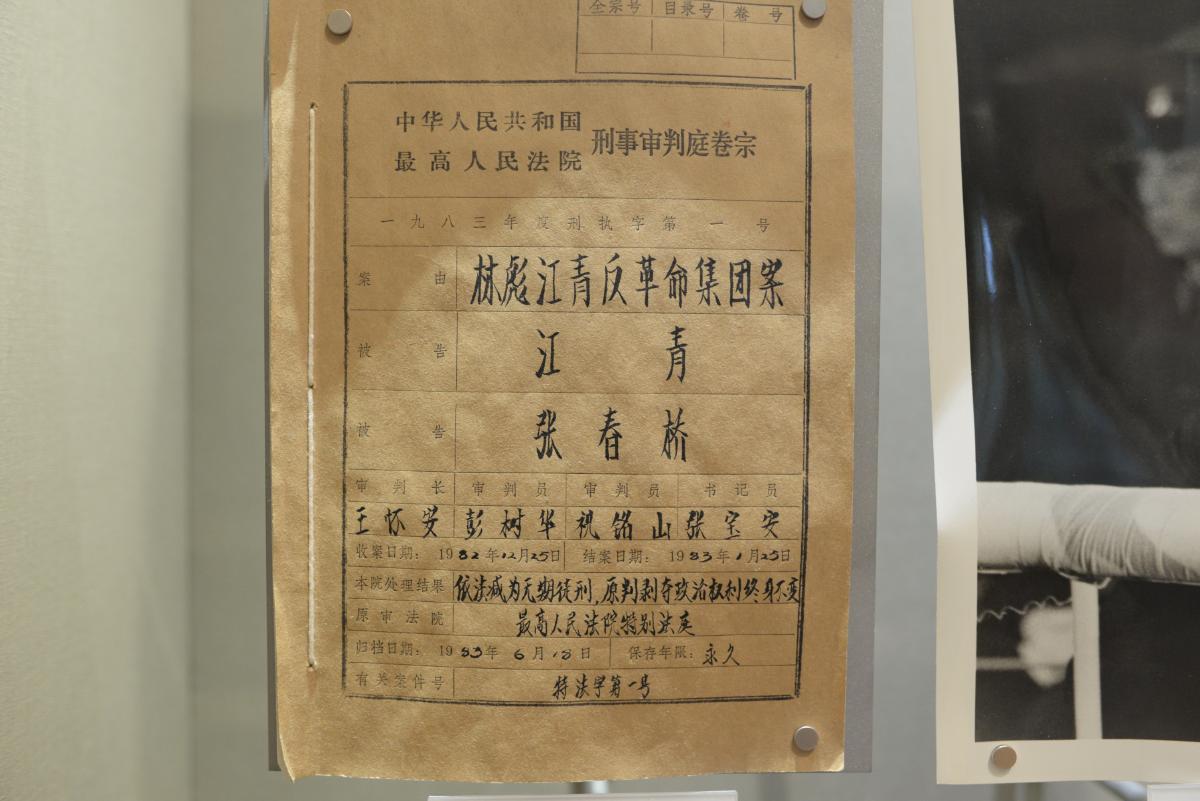 全宗号 目录号 卷号
中华人民共和国
最高人民法院
刑事审判庭卷宗
一九八三年度刑执字第一号
案由 林彪江青反革命集团案
被告 江青
被告 张春桥
审判长 审判员 审判员 书记员
王怀安 彭树华 祝铭山 张宝安
收案日期：1982年12月25日 结案日期：1983年1月25日
本院处理结果 依法减为无期徒刑，原判剥夺政治权利终身不变
原审法院 最高人民法院特别法庭
归档日期：1983年6月18日 保存年限：永久
有关案件号 特法字第一号